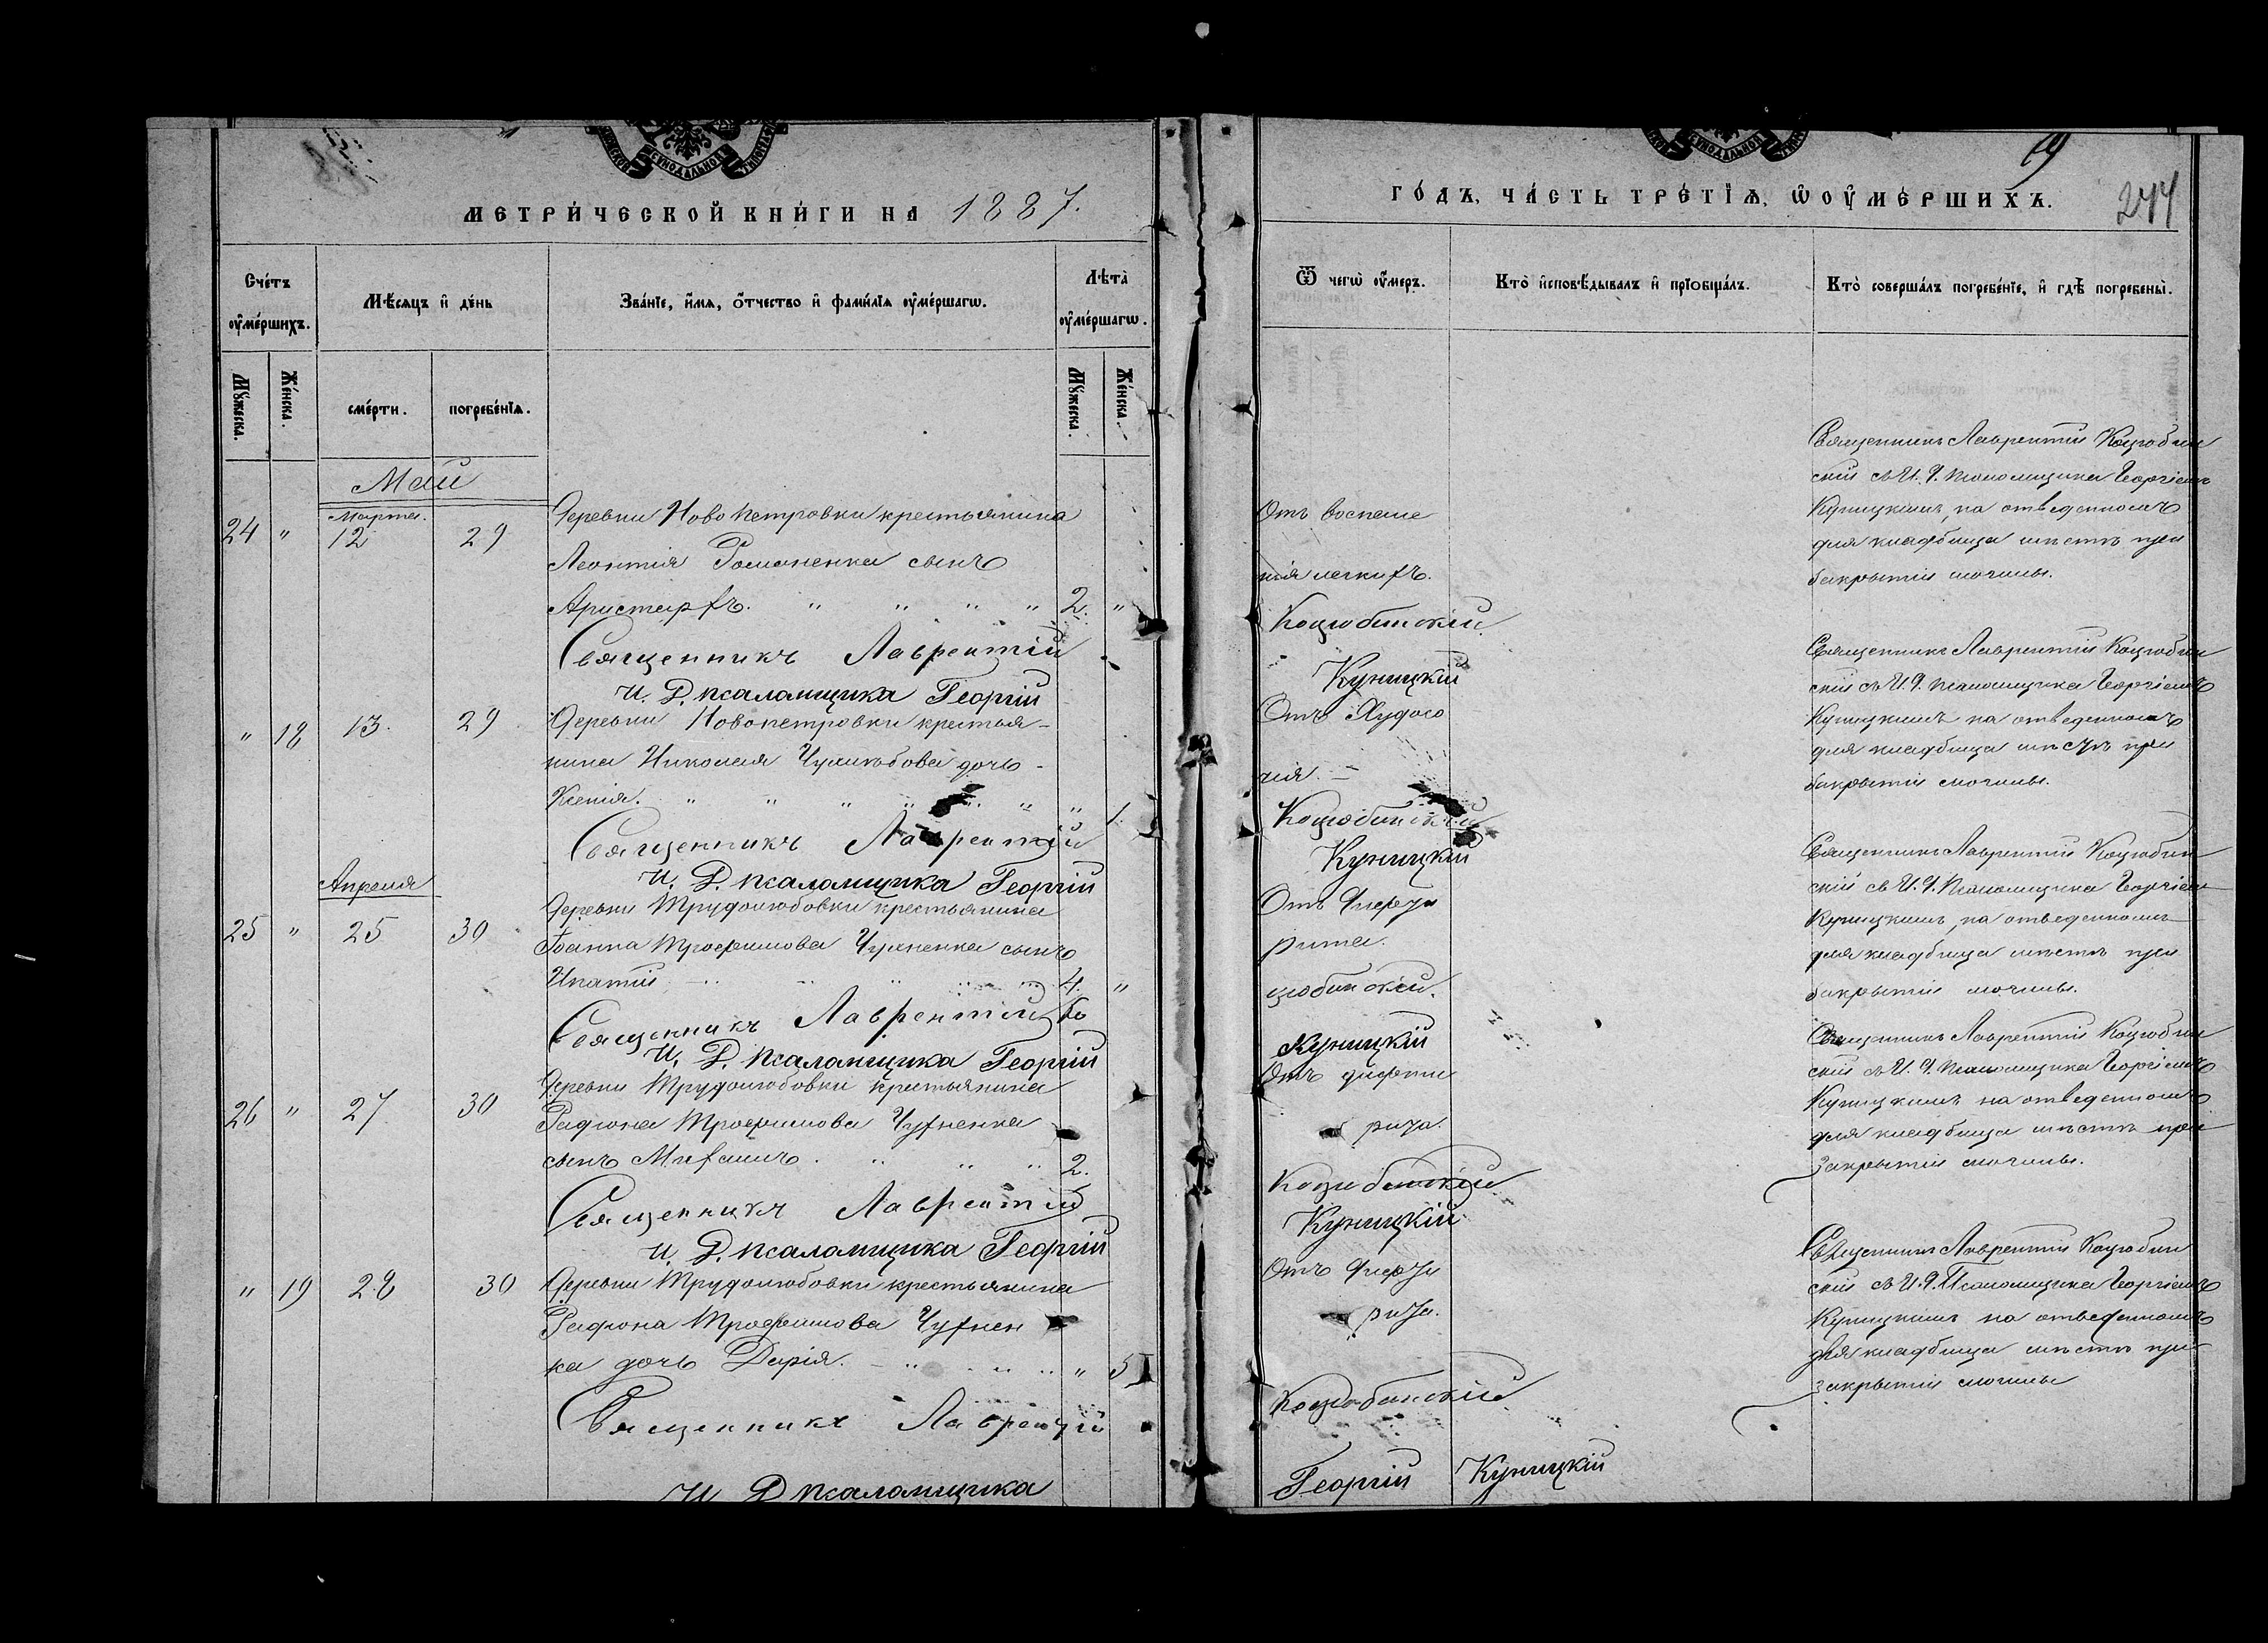 МЕТРИ́ЧЕСКОЙ КНИ́ГИ НА 1887.
Сче́тъ ᲂу҆ме́ршихъ.
Мѣ́сѧцъ и҆ де́нь
Зва́нїе, и҆́мѧ, ѻ҆́тчество и҆ фами́лїѧ ᲂу҆ме́ршагѡ.
Лѣта̀ ᲂу҆ме́ршагѡ.
Мꙋ́жеска.
Же́нска.
сме́рти.
погребе́нїѧ.
Мꙋ́жеска.
Же́нска.
Май
Марта.
24 " 12 29 Деревни Ново Петровки крестьянина
Леонтія Романенка сынъ
Аристархъ. " " " " 2. "
Священникъ Лаврентій
И. Д. псаломщика Георгій
" 18 13. 29 Деревни Новопетровки крестья-
нина Николая дочь
Ксенія. " " " " " " " 1.
Священникъ Лаврентій
И. Д. псаломщика Георгій
Апреля
25 " 25 30 Деревни Трудолюбовки крестьянина
Іоанна Трофимова сынъ
Ипатій 4. "
Священникъ Лаврентій Ко
И. Д. псаломщика Георгій
26 " 27 30 Деревни Трудолюбовки крестьянина
Родіона Трофимова Чухненка
сынъ Михаилъ. " " " 2.
Священникъ Лаврентій
И. Д. псаломщика Георгій
" 19 28 30 Деревни Трудолюбовки крестьянина
Родіона Трофимова Чухнен
ка дочь Дарія. " 5
Священникъ Лаврентій
И Д псаломщика
19
244
ГО́ДЪ, ЧА́СТЬ ТРЕ́ТЇѦ, Ѡ ОУ҆МЕ́РШИХЪ.
Ѿ чегѡ̀ ᲂу҆́меръ.
Кто̀ и҆сповѣ́дывалъ и҆ прїѻбща́лъ.
Кто̀ соверша́лъ погребе́нїе, и҆ гдѣ̀ погребены̀.
Отъ воспале
нія легкихъ.
Коцюбинскій.
Куницкій
Священникъ Лаврентій Коцюбин
скій съ И. Д. псаломщика Георгіемъ
Куницкимъ, на отведенномъ
для кладбища мѣстѣ при
закрытіи могилы.
Отъ
Коцюбинскій
Куницкій
Священникъ Лаврентій Коцюбин
скій съ И. Д. псаломщика Георгіемъ
Куницкимъ на отведенномъ
для кладбища мѣстѣ при
закрытіи могилы.
Отъ Дифте
рита.
цюбинскій.
Куницкій
Священникъ Лаврентій Коцюбин
скій съ И. Д. Псаломщика Георгіемъ
Куницкимъ, на отведенномъ
для кладбища мѣстѣ при
закрытіи могилы.
Отъ дифте
рита.
Коцюбинскій
Куницкій
Священникъ Лаврентій Коцюбин
скій съ И. Д. Псаломщика Георгіемъ
Куницкимъ на отведенномъ
для кладбища мѣстѣ при
закрытіи могилы.
Отъ Дифте
рита.
Коцюбинскій
Георгій Куницкій
Священникъ Лаврентій Коцюбин
скій съ И. Д. Псаломщика Георгіемъ
Куницкимъ на отведенномъ
для кладбища мѣстѣ при
закрытіи могилы